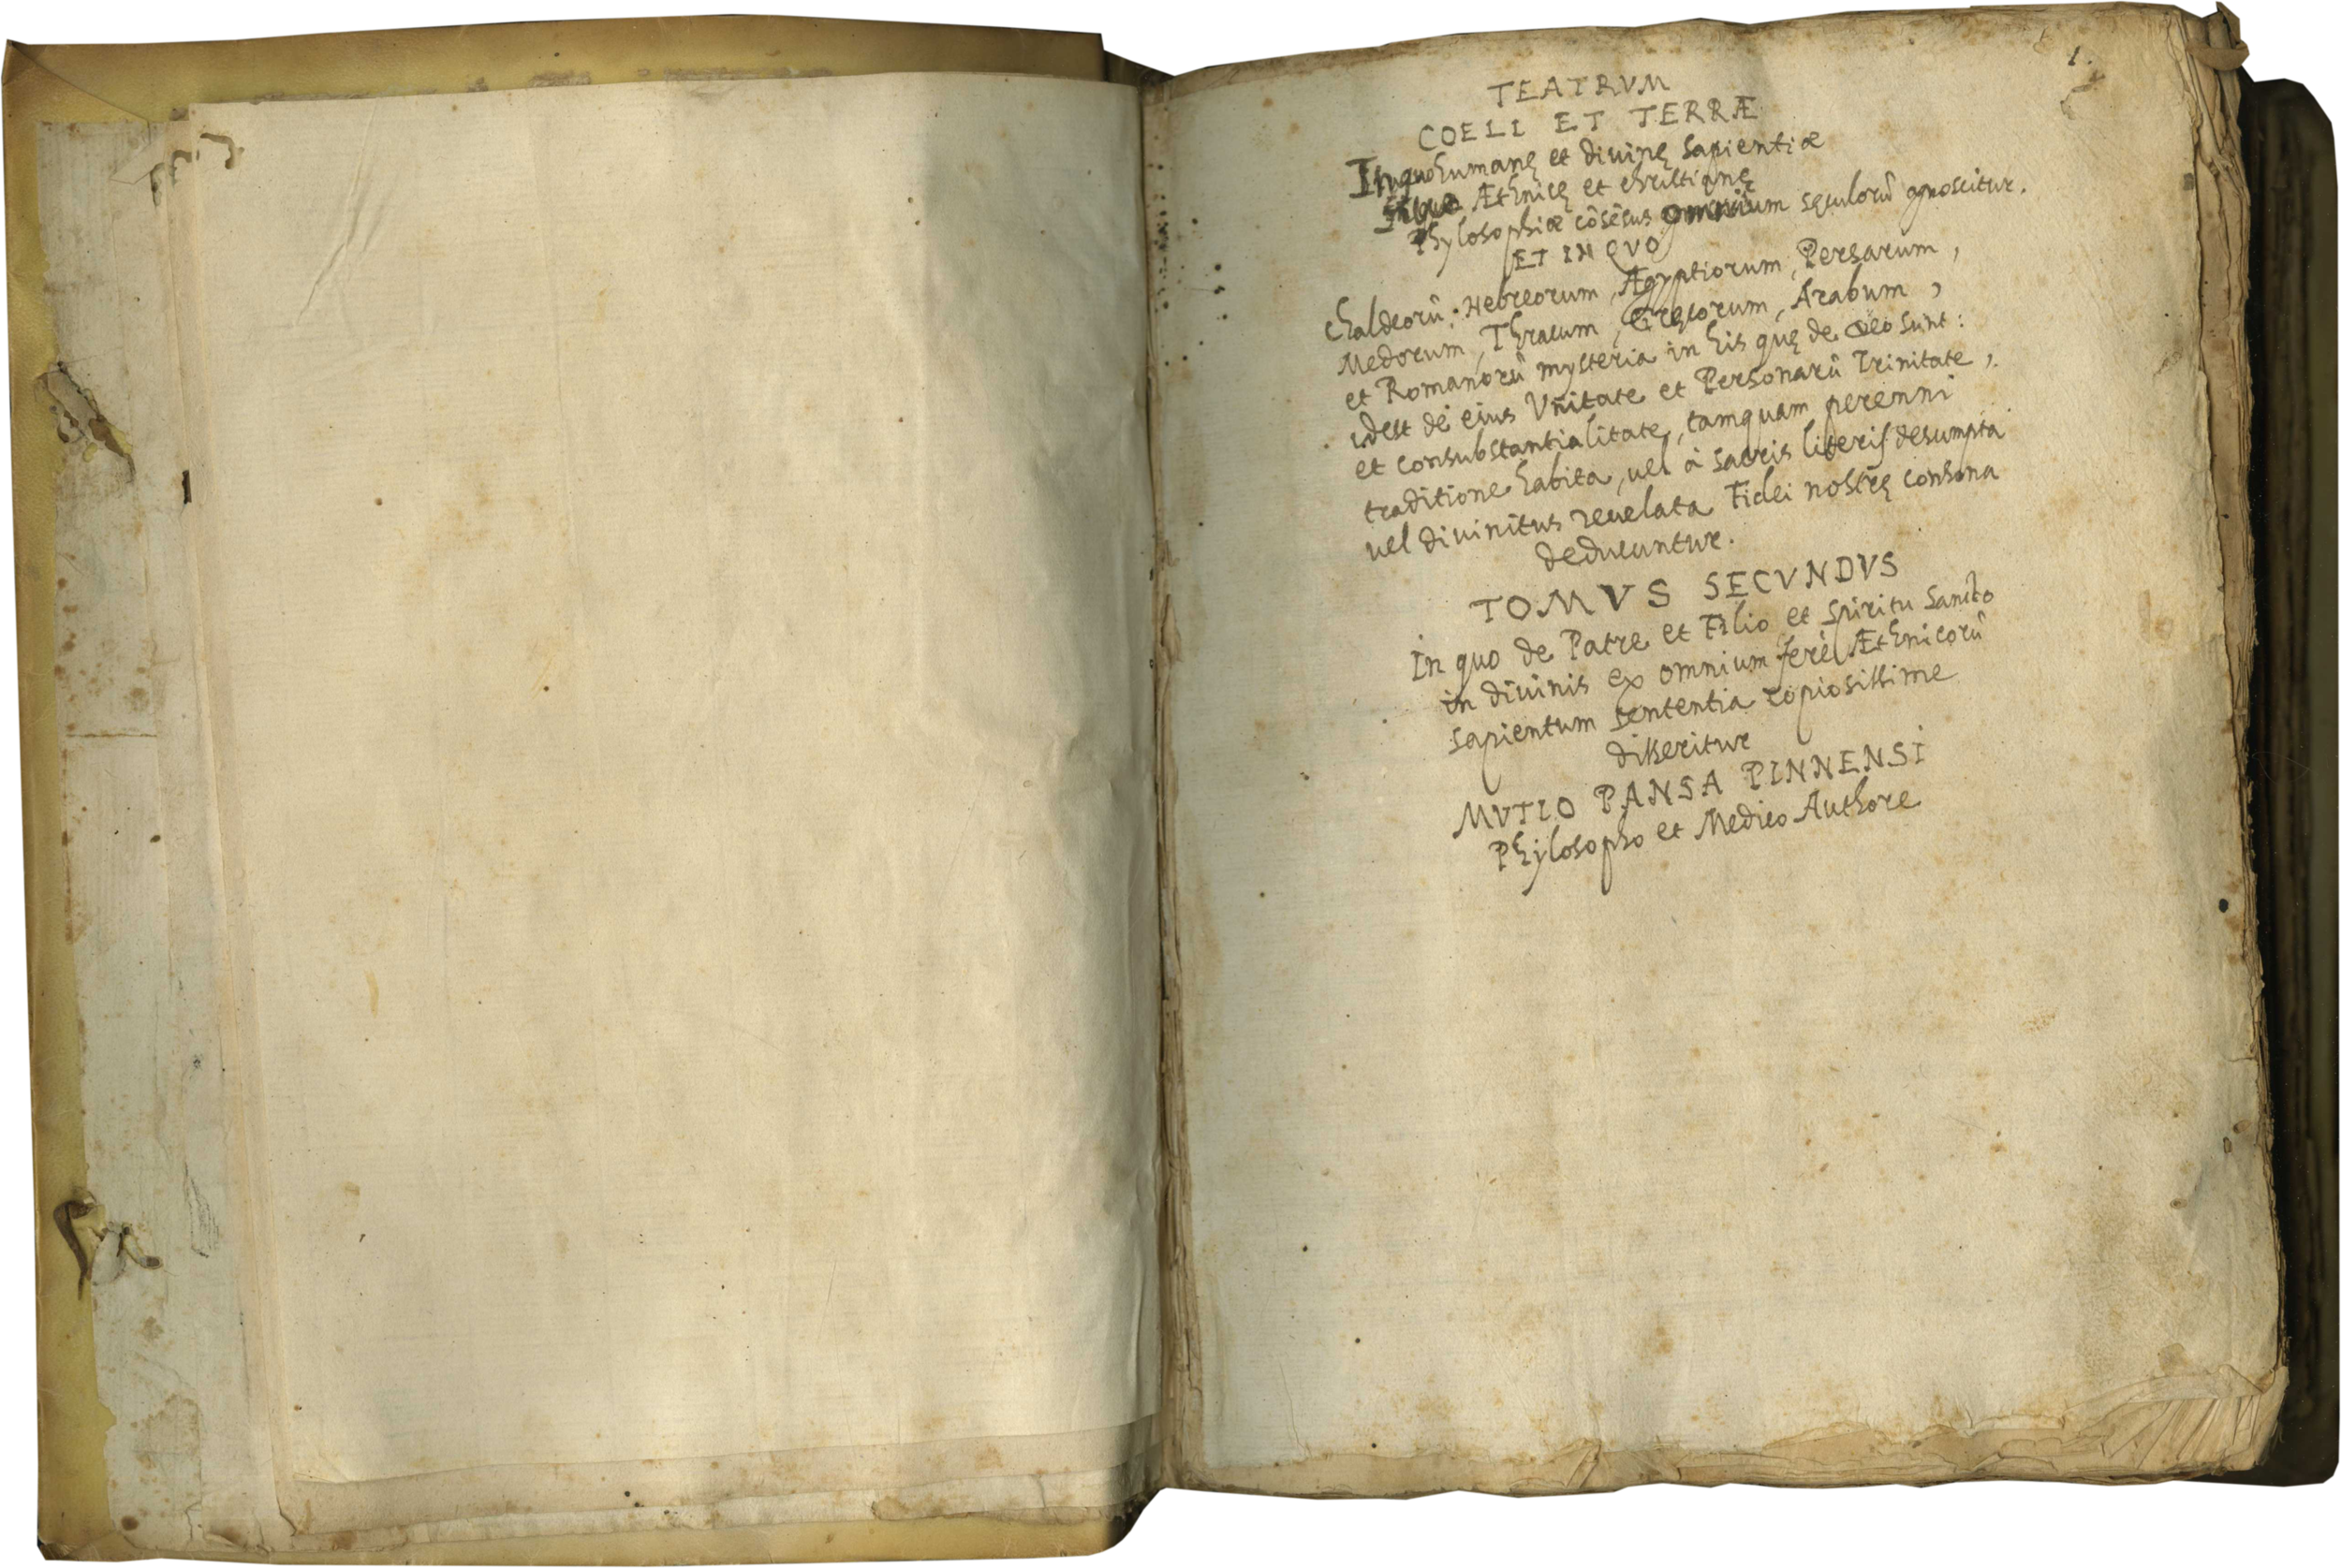 1.
TEATRVM
COELI ET TERRÆ
In quo humanę et diuinę sapientiæ
Æthnicę et christianę
Phylosophiæ cõsẽsus omnium sęculorũ gnoscitur.
ET IN QVO
Chaldeorũ, Hebreorum, Ægyptiorum, Persarum,
Medorum, Thracum, Gręcorum, Arabum,
et Romanorũ mysteria in his quę de Deo sunt:
idest de eius Vnitate et Personarũ Trinitate,
et consubstantialitate, tamquam perenni
traditione habita, uel à sacris literis desumpta
uel diuinitus reuelata Fidei nostrę consona
deducuntur.
TOMVS SECVNDVS
In quo de Patre et Filio et Spiritu Sancto
in diuinis ex omnium ferè Æthnicorũ
sapientum sententia copiosissime
disseritur
MVTIO PANSA PINNENSI
Phylosopho et Medico Authore